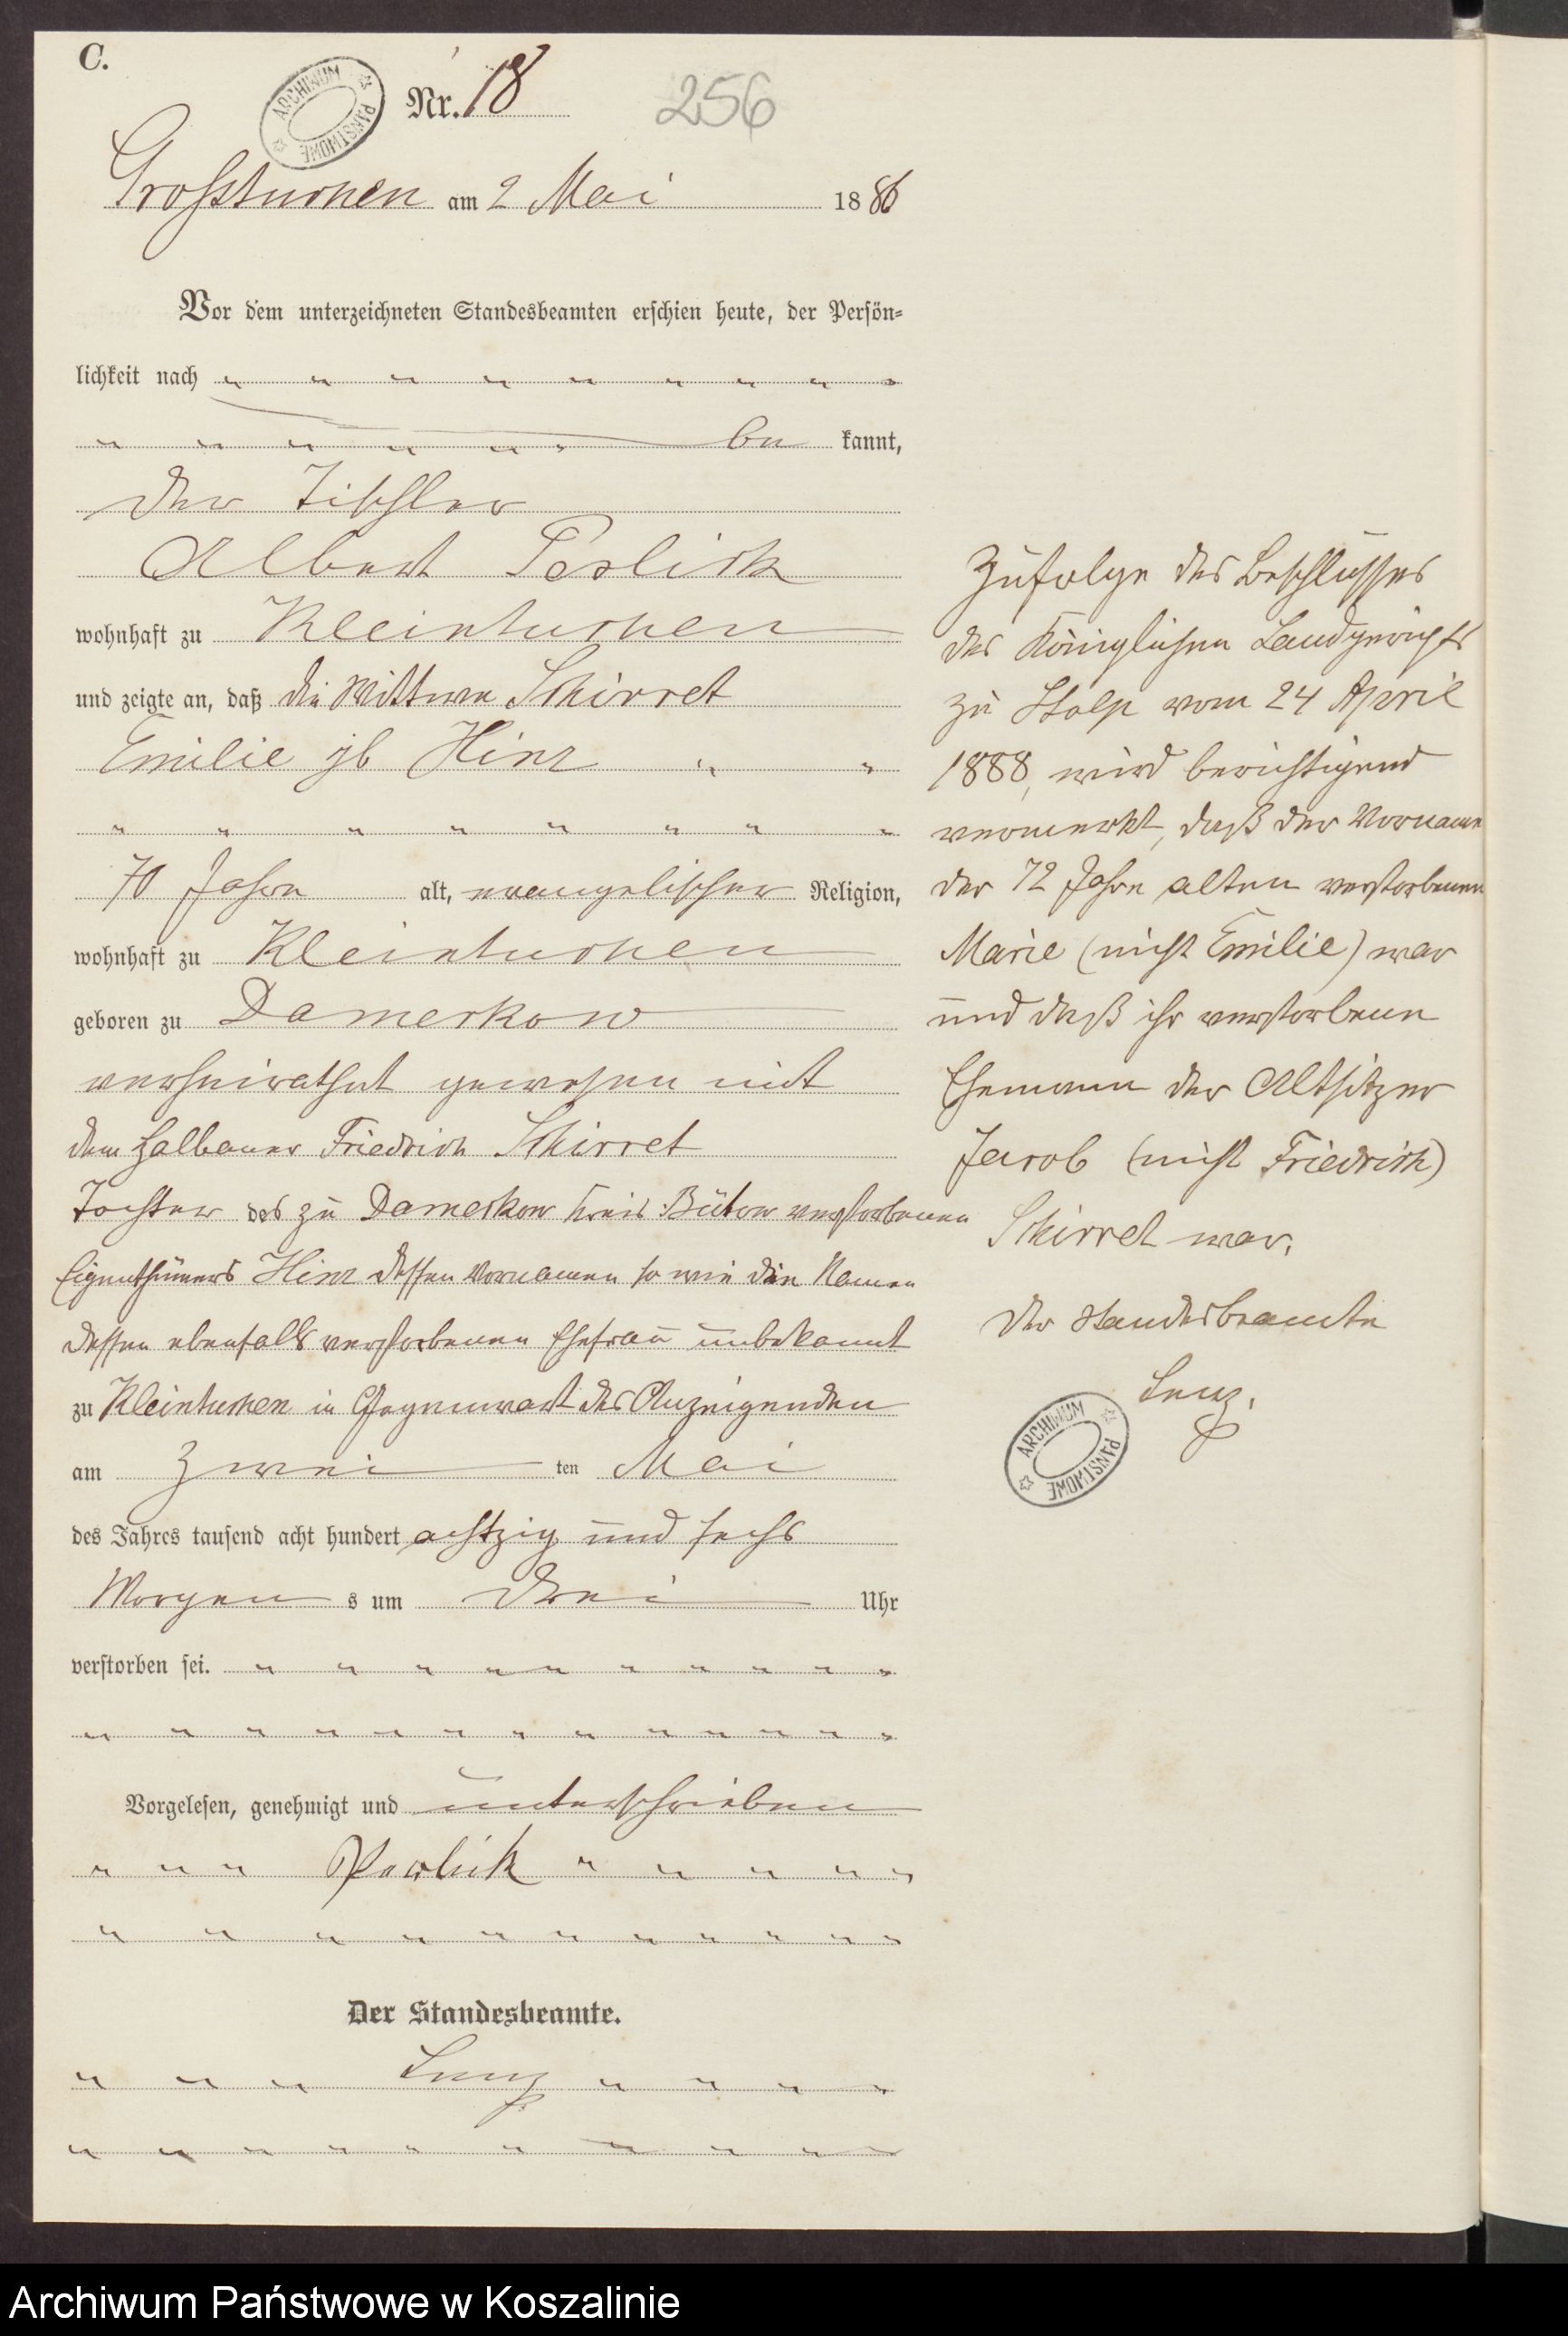 C.
ARCHIWUM PAŃSTWOWE
Nr. 18
256
Großtuchen am 2 Mai 1886
Vor dem unterzeichneten Standesbeamten erschien heute, der Persön-
lichkeit nach
be kannt,
der Tischler
Albert
wohnhaft zu Kleintuchen
und zeigte an, daß die Wittwe Schirret
Emilie gb Hinz
70 Jahre alt, evangelischer Religion,
wohnhaft zu Kleintuchen
geboren zu Damerkow
verheirathet gewesen mit
dem Halbauer Friedrich Schirret
Tochter des zu Damerkow Kreis Bütow verstorbenen
Eigenthümers Hinz dessen Vornamen so wie den Namen
dessen ebenfalls verstorbenen Ehefrau unbekannt
zu Kleintuchen in Gegenwart des Anzeigenden
am zwei ten Mai
des Jahres tausend acht hundert achtzig und sechs
Morgen s um drei Uhr
verstorben sei.
Vorgelesen, genehmigt und unterschrieben
Der Standesbeamte.
Lenz
Zufolge des Beschlusses
des Königlichen Landgerichts
zu Stolp vom 24 April
1888, wird berichtigend
vermerkt, daß der Vorname
der 72 Jahre alten verstorbenen
Marie (nicht Emilie) war
und daß ihr verstorbene
Ehemann der Altsitzer
Jacob (nicht Friedrich)
Schirret war.
Der Standesbeamte
Lenz.
ARCHIWUM PAŃSTWOWE
Archiwum Państwowe w Koszalinie